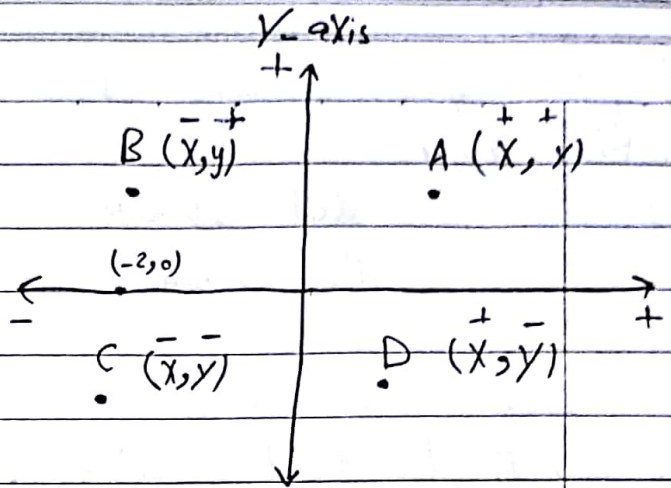 Y-axis
+
- +
B (x,y)
+ +
A (x, y)
(-2,0)
- +
- -
C (x,y)
+ -
D (x,y)